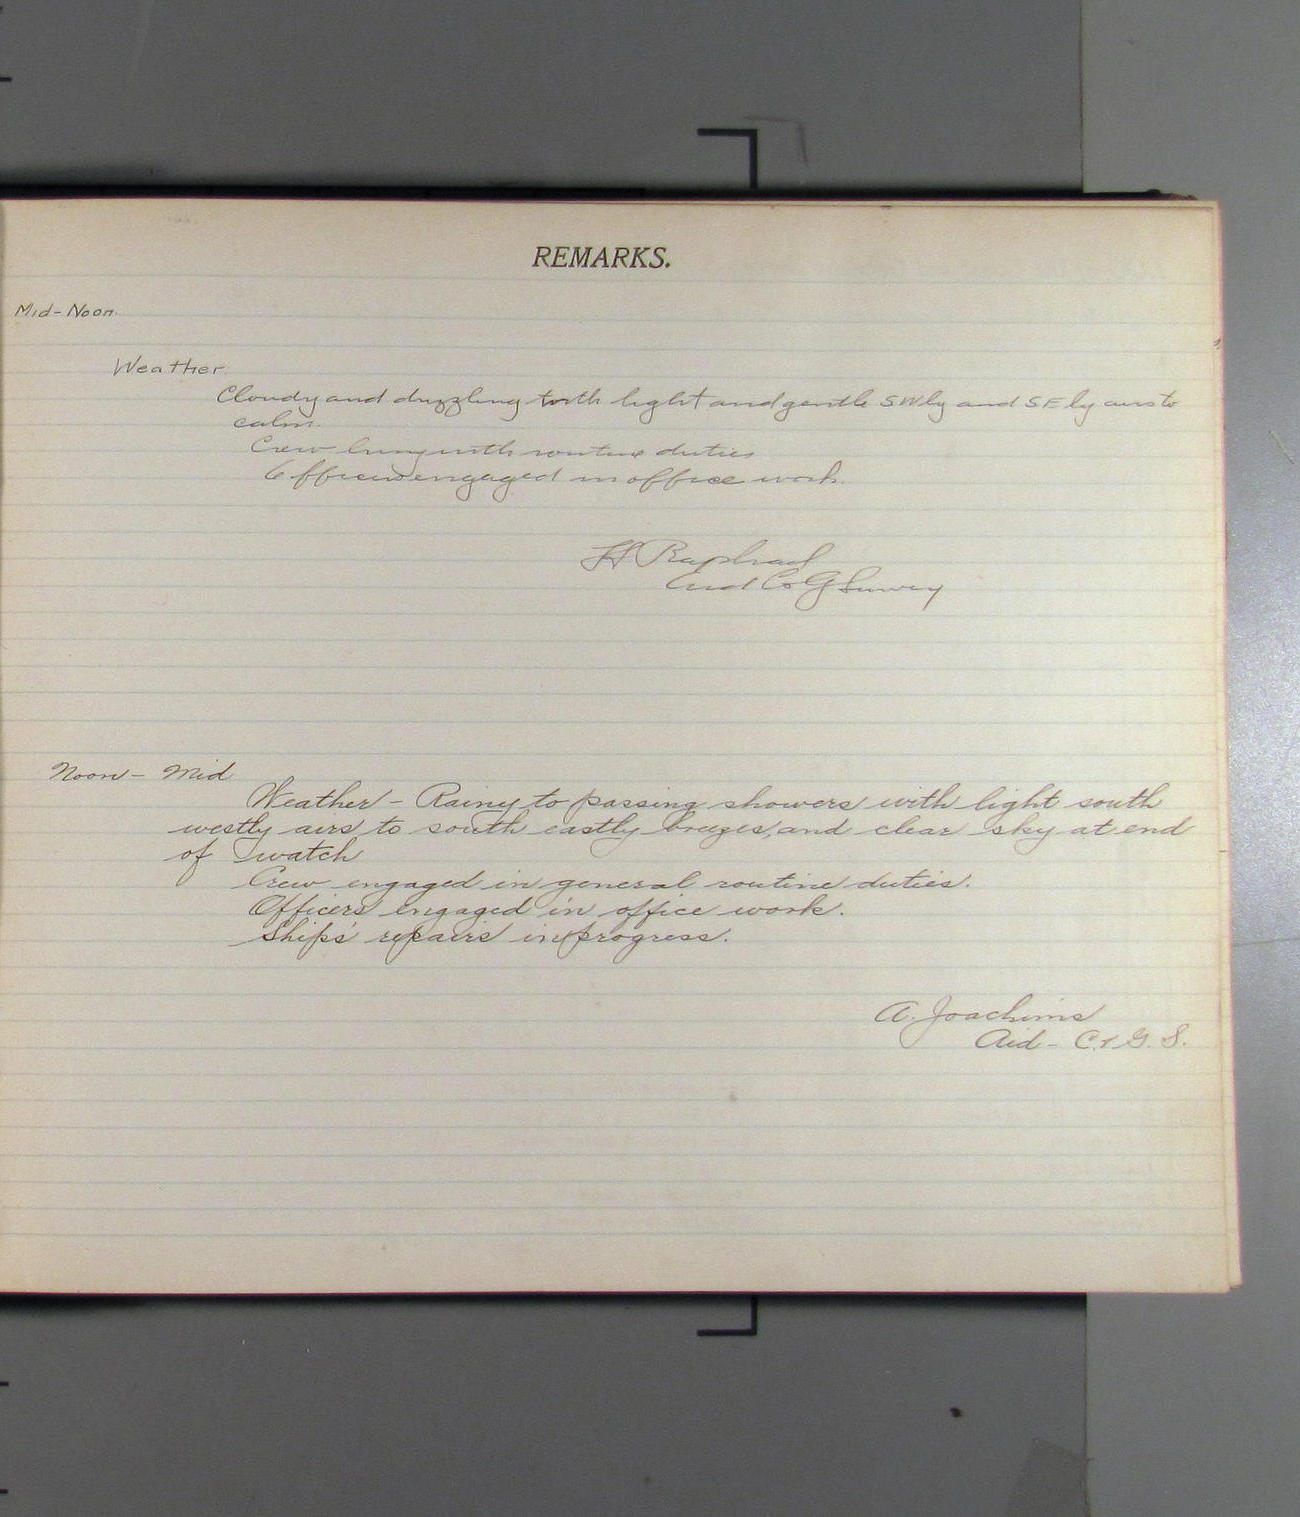 REMARKS.
Mid-Noon.
Weather.
Cloudy and drizzling with light and gentle SWly and SEly airs to
calm.
Crew busy with routine duties
Officers engaged in office work.
H Raphael
C & G Survey
Noon - Mid
Weather - Rainy to passing showers with light south
westly airs to south eastly breezes, and clear sky at end
of watch
Crew engaged in general routine duties.
Officers engaged in office work.
Ships' repairs in progress.
A. Joachims
Aid - C. & G. S.